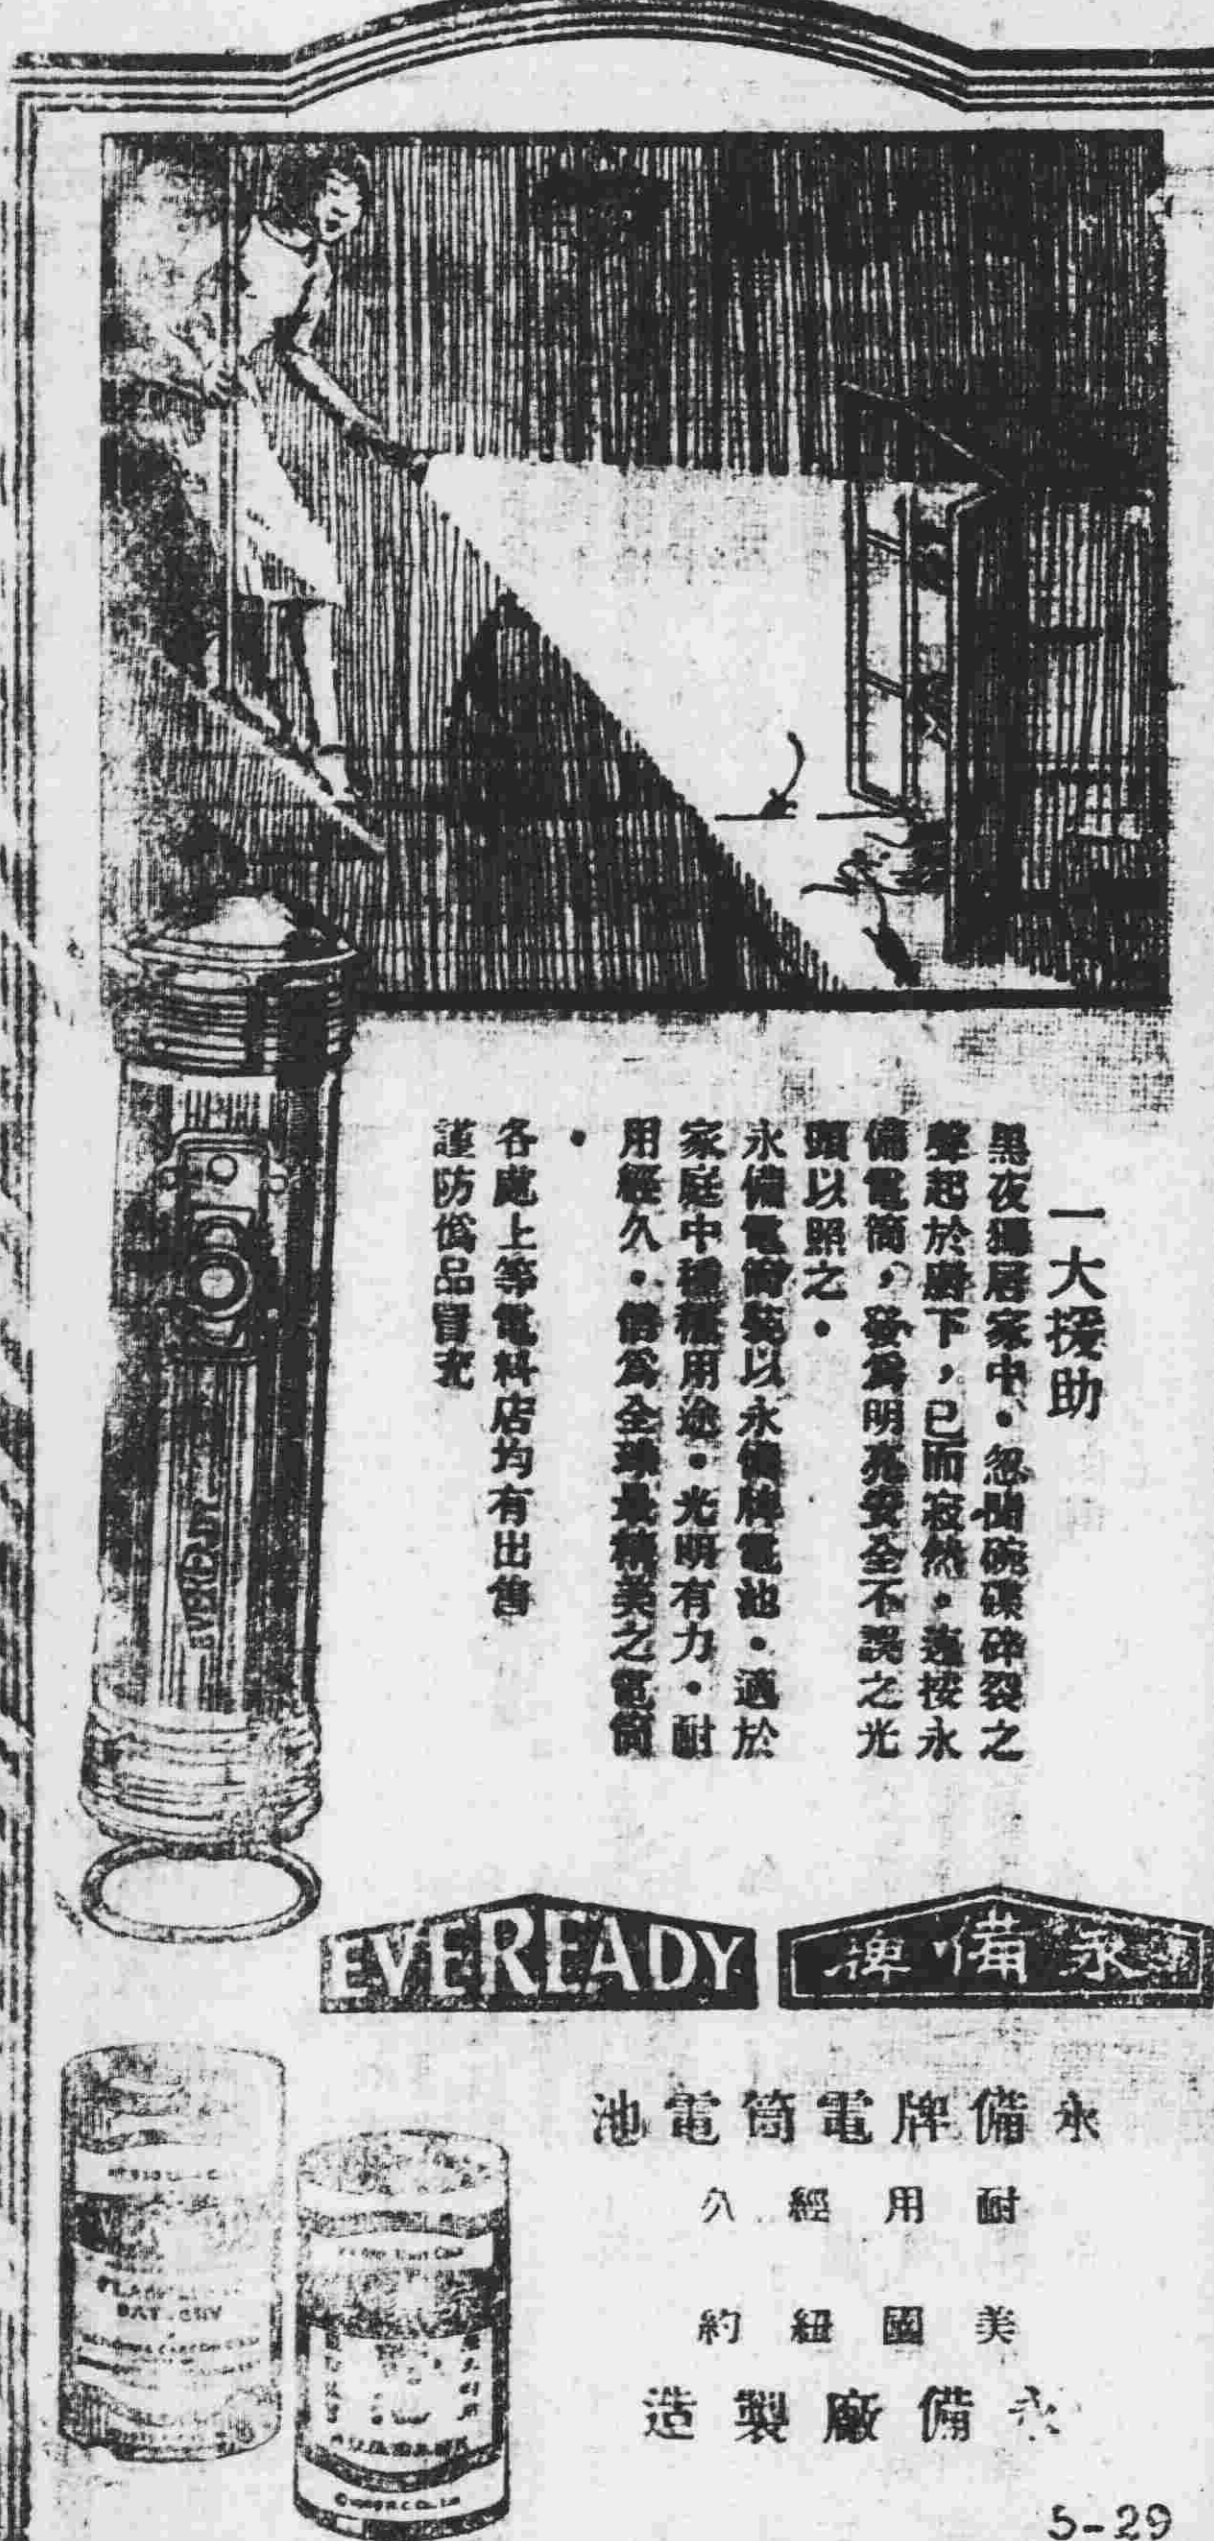 一大援助
黑夜獨居家中・忽聞碗碟碎裂之
聲起於廚下,已而寂然・遙按永
備電筒,發爲明亮安全不誤之光
頭以照之・
永備電筒裝以永備牌電池・適於
家庭中種種用途・光明有力・耐
用經久・偹爲全球最精美之電筒
・
各處上等電料店均有出售
謹防僞品冒充
EVEREADY
EVEREADY
永備牌
永備牌電筒電池
耐用經久
美國紐約
永備廠製造
5-29